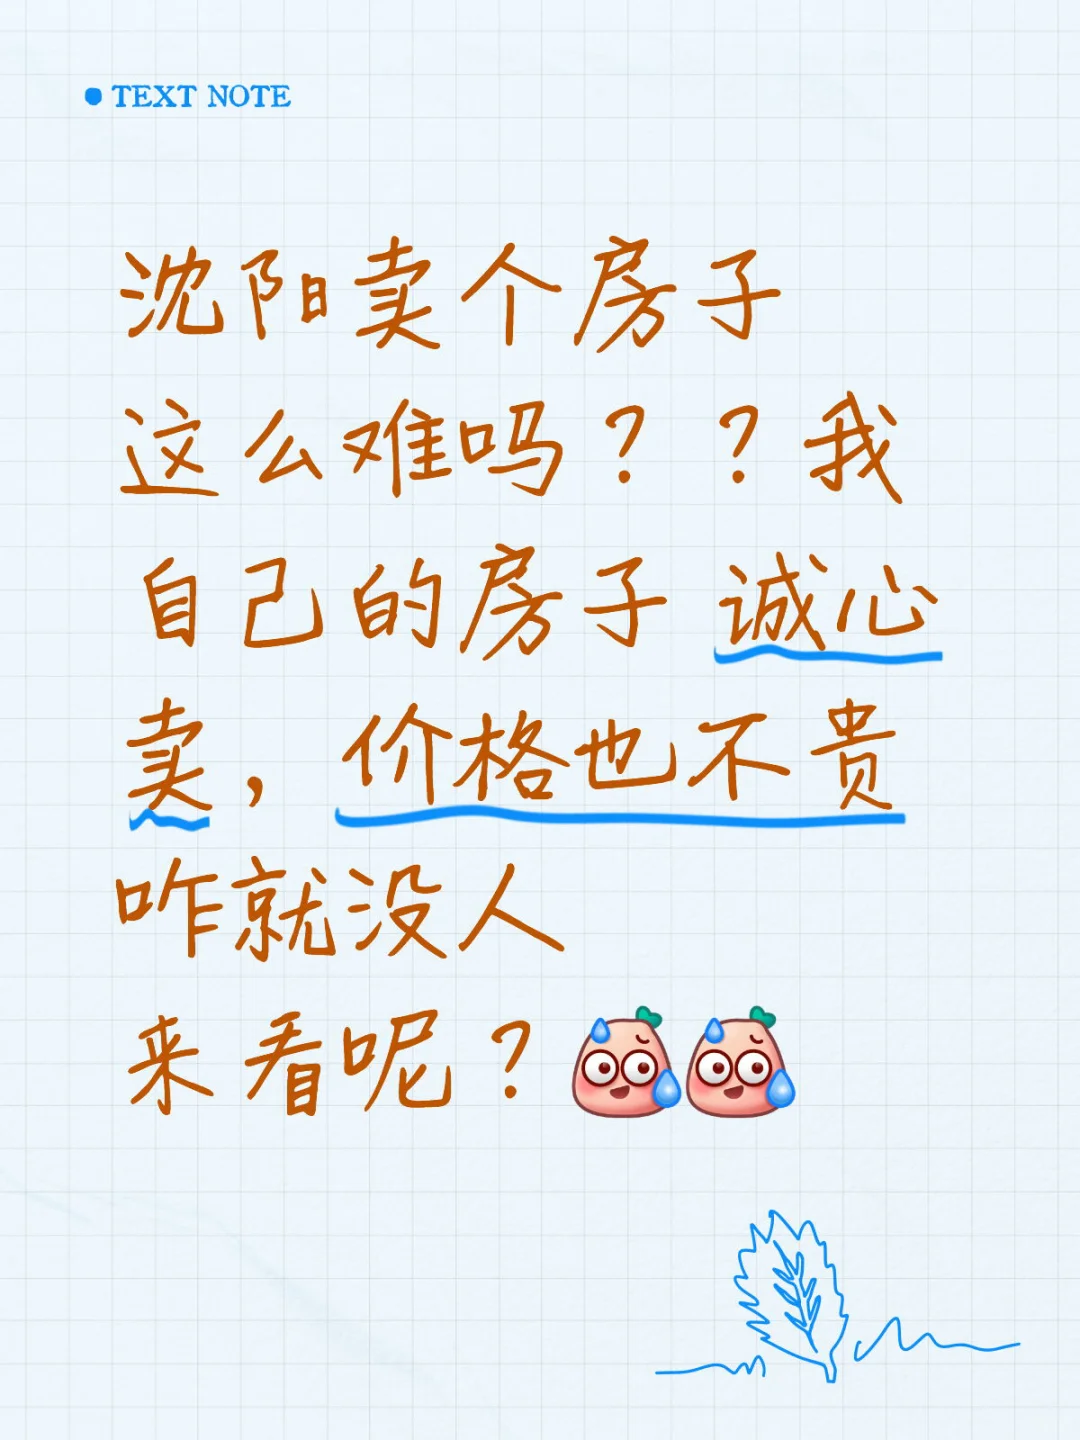 TEXT NOTE
沈阳卖个房子
这么难吗？？我
自己的房子 诚心
卖，价格也不贵
咋就没人
来看呢？